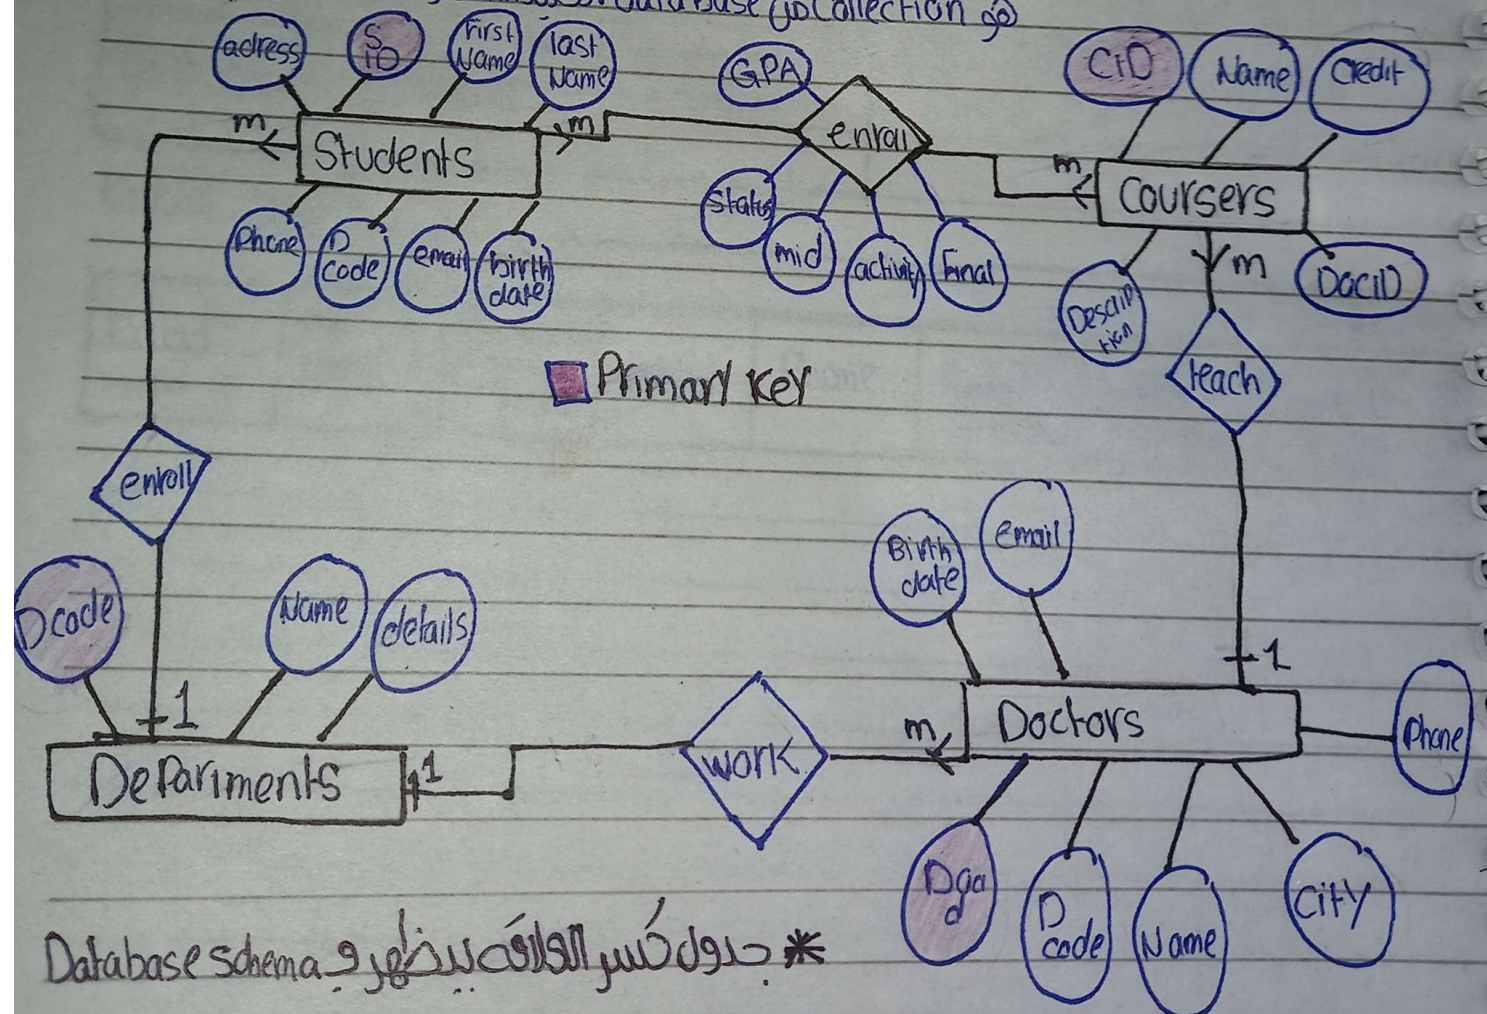 Database
Collection
adress
S
iD
First
Name
last
Name
GPA
CiD
Name
Credit
m
Students
m
enrol
m
Coursers
Phone
D
code
email
birth
date
Status
mid
activity
Final
Descrip
tion
m
DocID
teach
Primary Key
enroll
Dcode
Name
details
Birth
date
email
1
1
Departments
1
work
m
Doctors
Phone
D
code
Name
City
* جدول كسر العلاقة بيظهر في Database schema